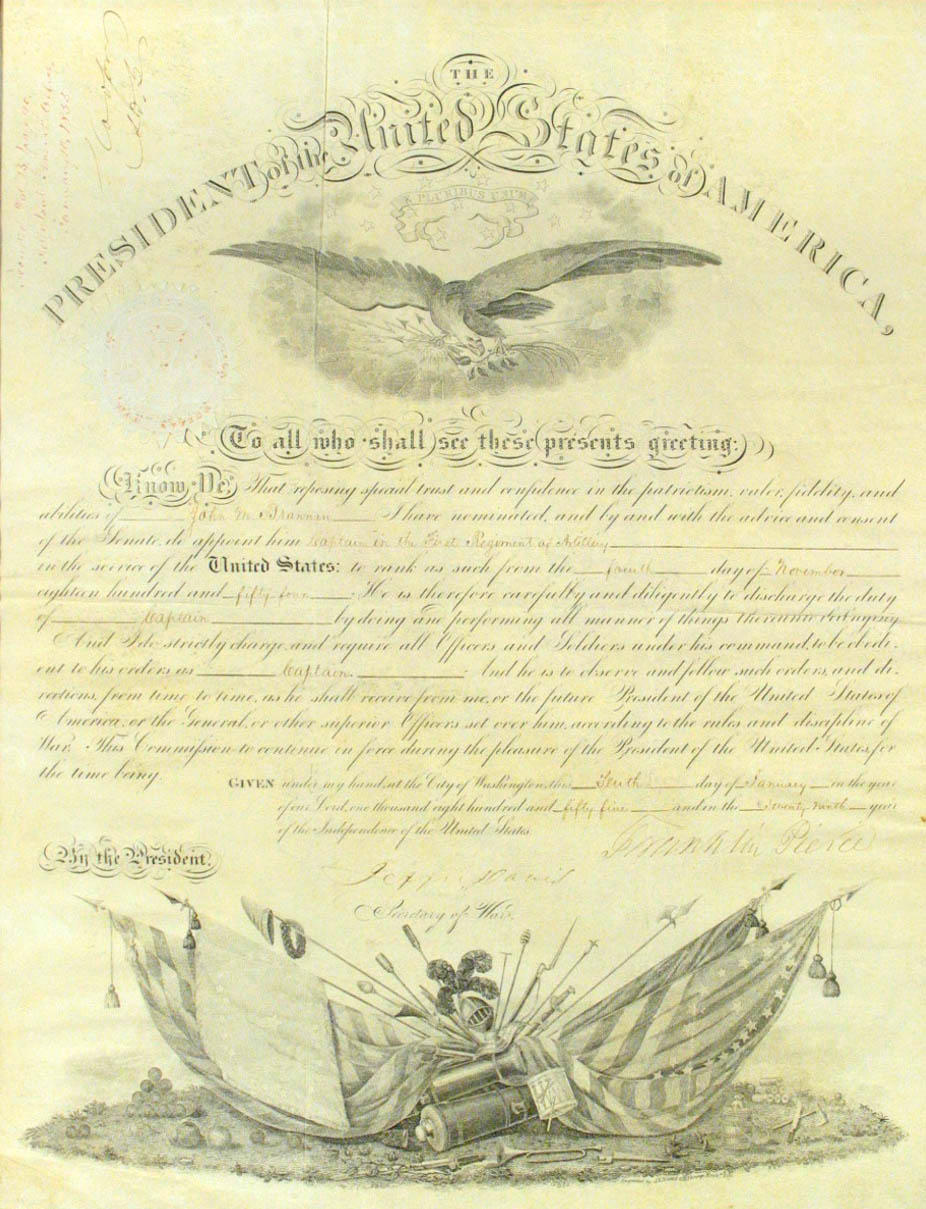 THE
PRESIDENT of the United States of AMERICA,
E PLURIBUS UNUM
To all who shall see these presents greeting:
Know Ye, That reposing special trust and confidence in the patriotism, valor, fidelity, and
abilities of John M. Brannan I have nominated, and by and with the advice and consent
of the Senate, do appoint him Captain in the First Regiment of Artillery
in the service of the United States: to rank as such from the fourth day of November
eighteen hundred and fifty four. He is therefore carefully and diligently to discharge the duty
of Captain by doing and performing all manner of things thereunto belonging.
And I do strictly charge, and require all Officers and Soldiers under his command, to be obedi-
ent to his orders as Captain. And he is to observe and follow such orders, and di-
rections, from time to time, as he shall receive from me, or the future President of the United States of
America, or the General, or other superior Officers set over him, according to the rules and discipline of
War. This Commission to continue in force during the pleasure of the President of the United States, for
the time being.
GIVEN under my hand, at the City of Washington, this Tenth day of January in the year
of our Lord, one thousand eight hundred and fifty five and in the Seventy Ninth year
of the Independence of the United States.
Franklin Pierce
By the President,
Jeffn Davis
Secretary of War.